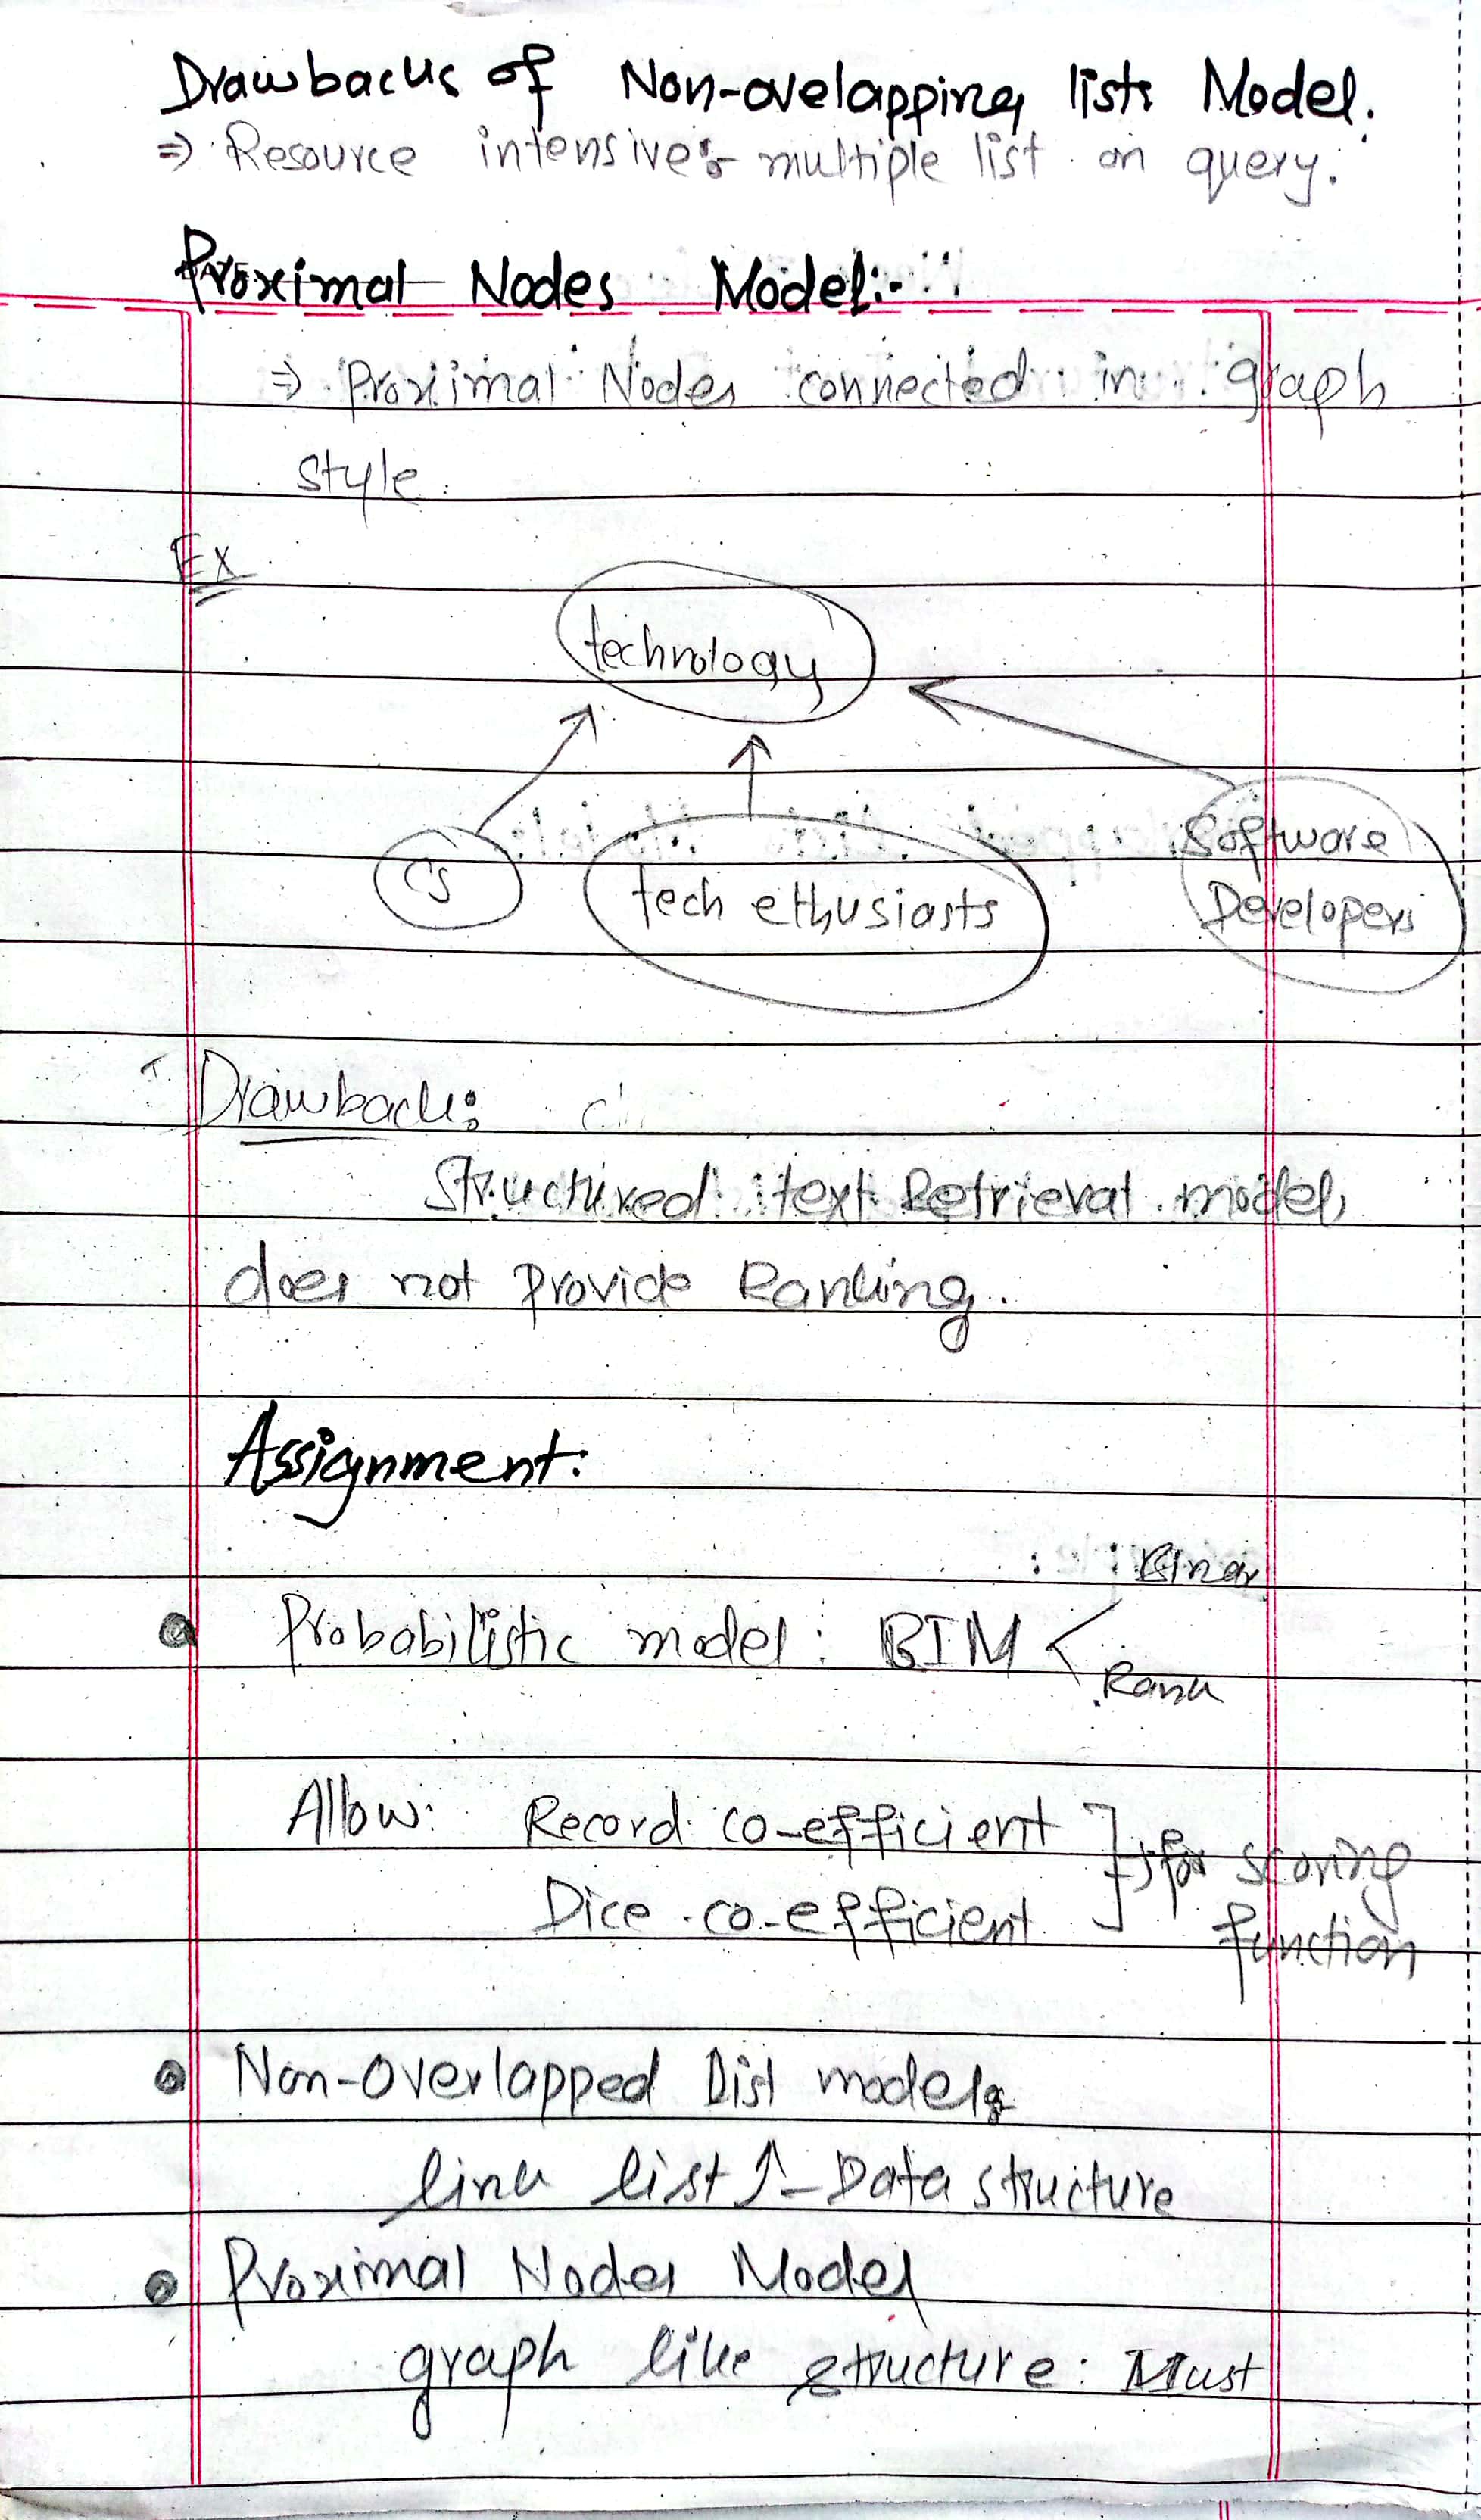 Drawbacks of Non-ovelapping lists Model.
⇒ Resource intensive:- multiple list on query.
Proximal Nodes Model:-
⇒ Proximal Nodes connected in graph
style.
Ex
technology
CS
tech ethusiasts
Software
Developers
Drawback:
Structured text Retrieval model
does not provide Ranking.
Assignment:
Binary
Probabilistic model: BIM <
Rank
Allow: Record co-efficient
Dice co-efficient
for scoring
function
Non-Overlapped list model:
link list ↑ - Data structure
Proximal Nodes Model
graph like structure: Must